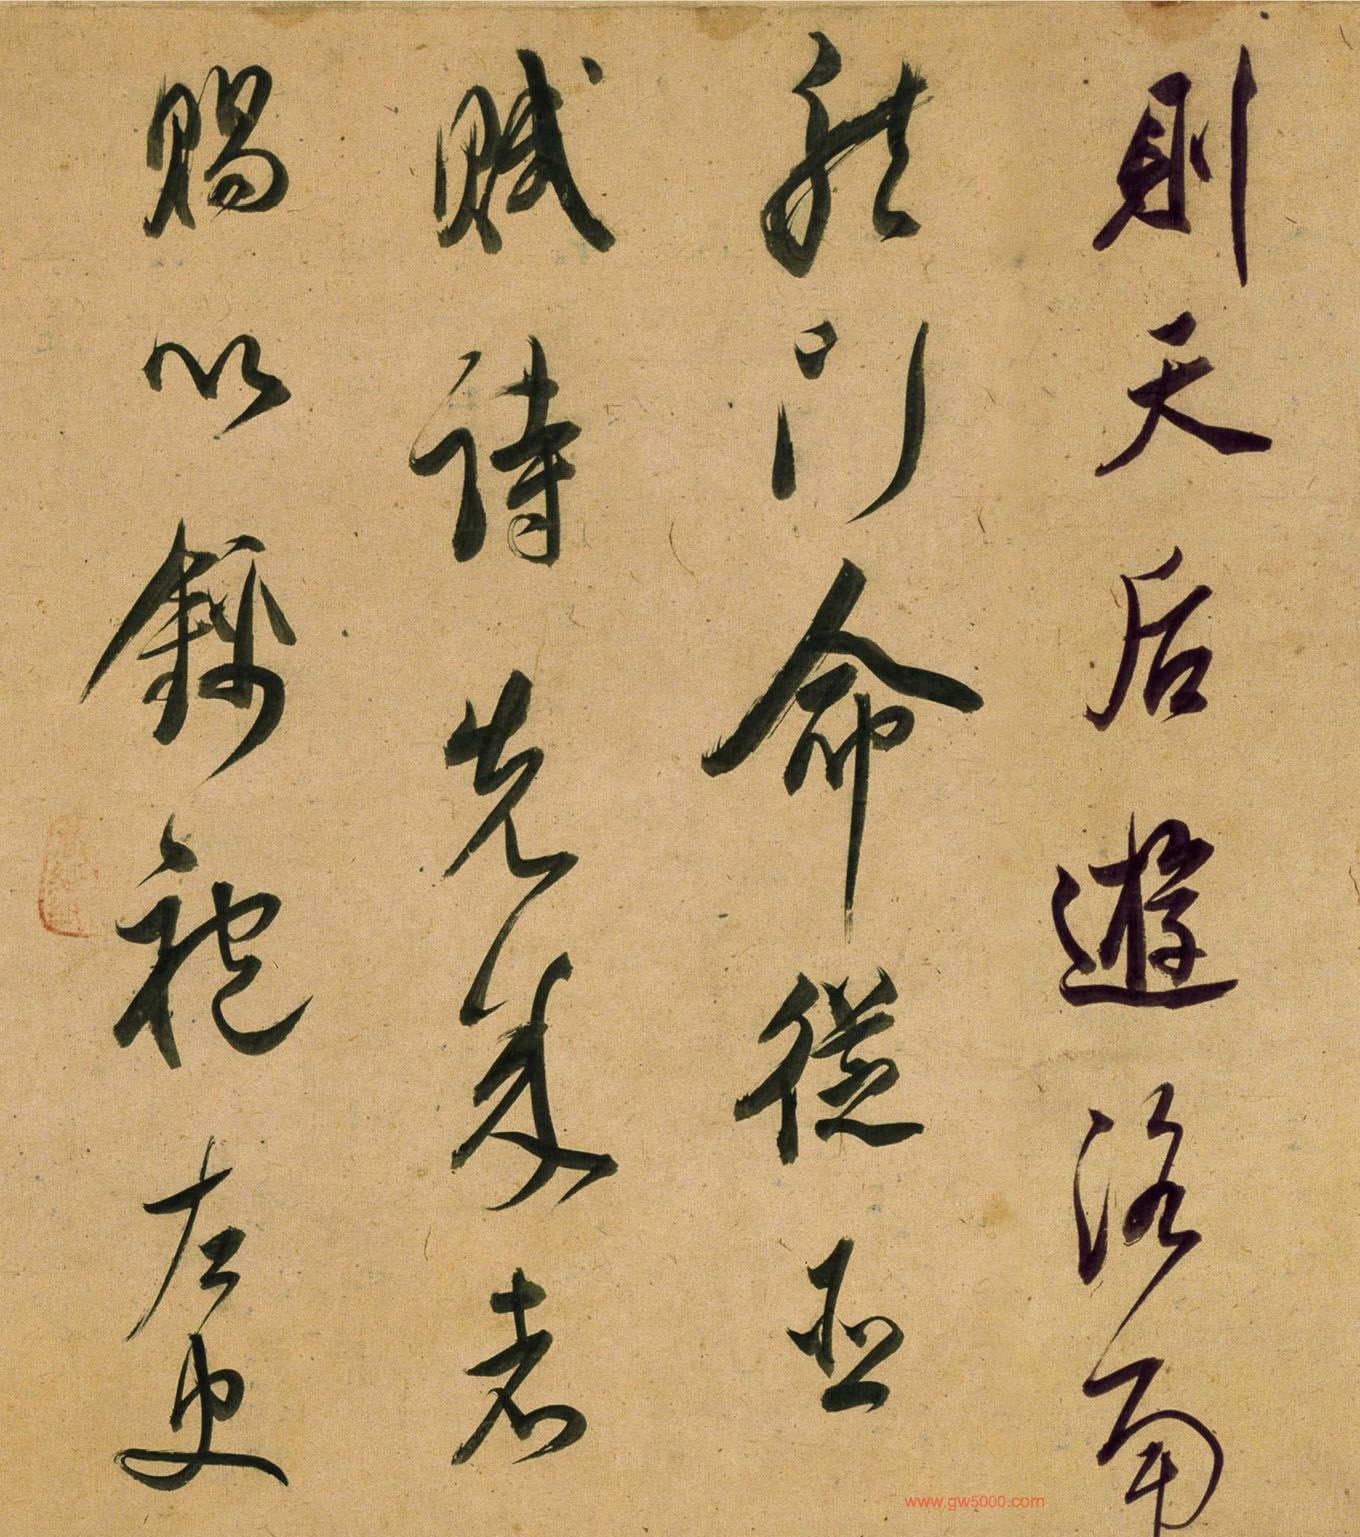 則天后遊洛南
龍門命從臣
賦詩先成者
賜以錦袍左史
www.gw5000.com